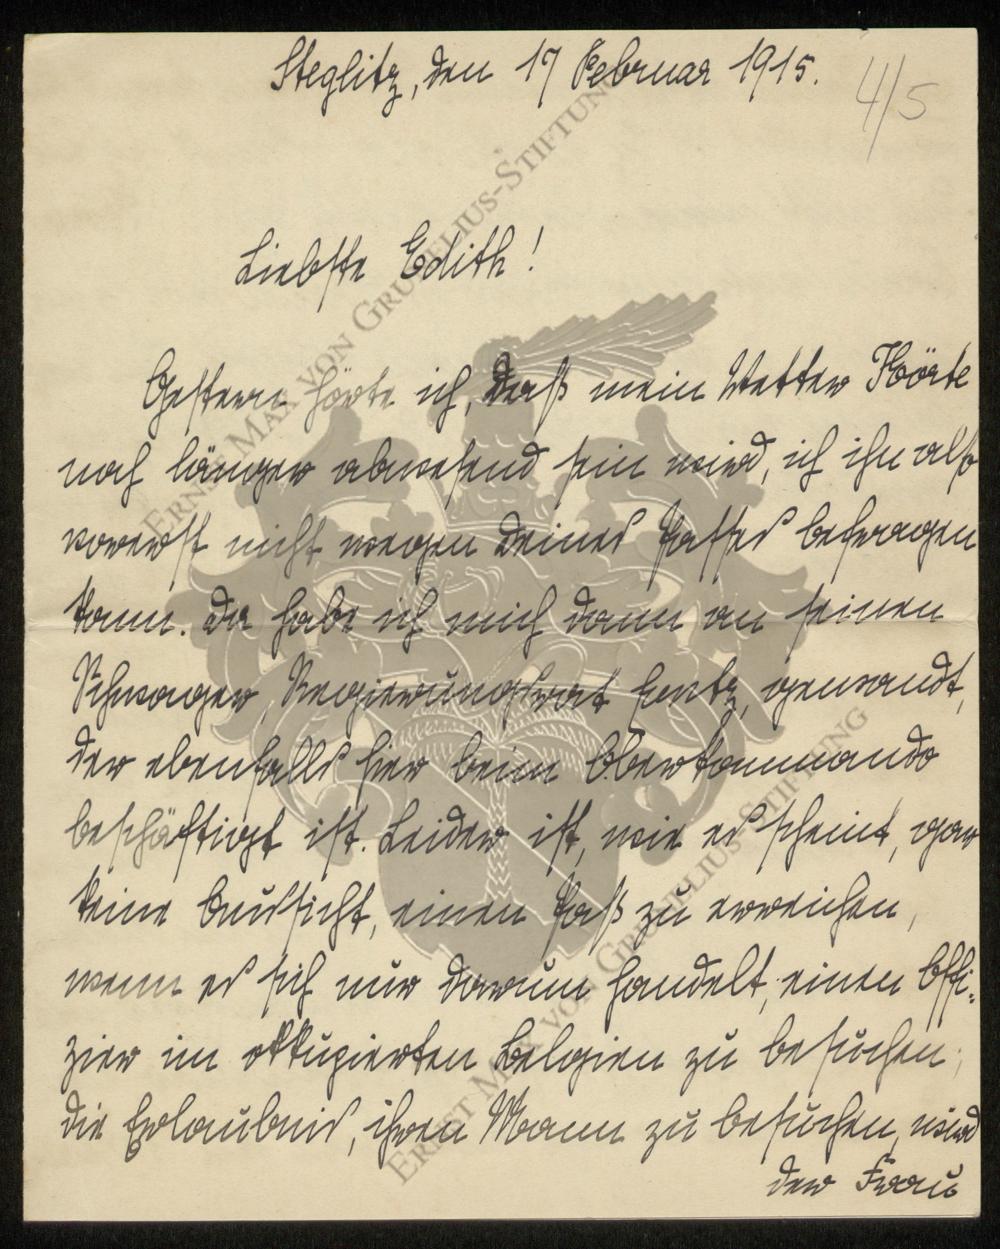 Steglitz, den 17 Februar 1915.
4/5
Liebste Edith!
Gestern hörte ich, daß mein Vetter Körte
noch länger abwesend sein wird, ich ihn also
vorerst nicht wegen Deines Passes befragen
kann. Da habe ich mich dann an seinen
Schwager, Regierungsrat Hentz, gewandt,
der ebenfalls hier beim Oberkommando
beschäftigt ist. Leider ist, wie es scheint, gar
keine Aussicht, einen Paß zu erreichen,
wenn es sich nur darum handelt, einen Offi-
zier im okkupierten Belgien zu besuchen;
die Erlaubnis, ihren Mann zu besuchen, wird
der Frau
Ernst Max von Grunelius-Stiftung
Ernst Max von Grunelius-Stiftung